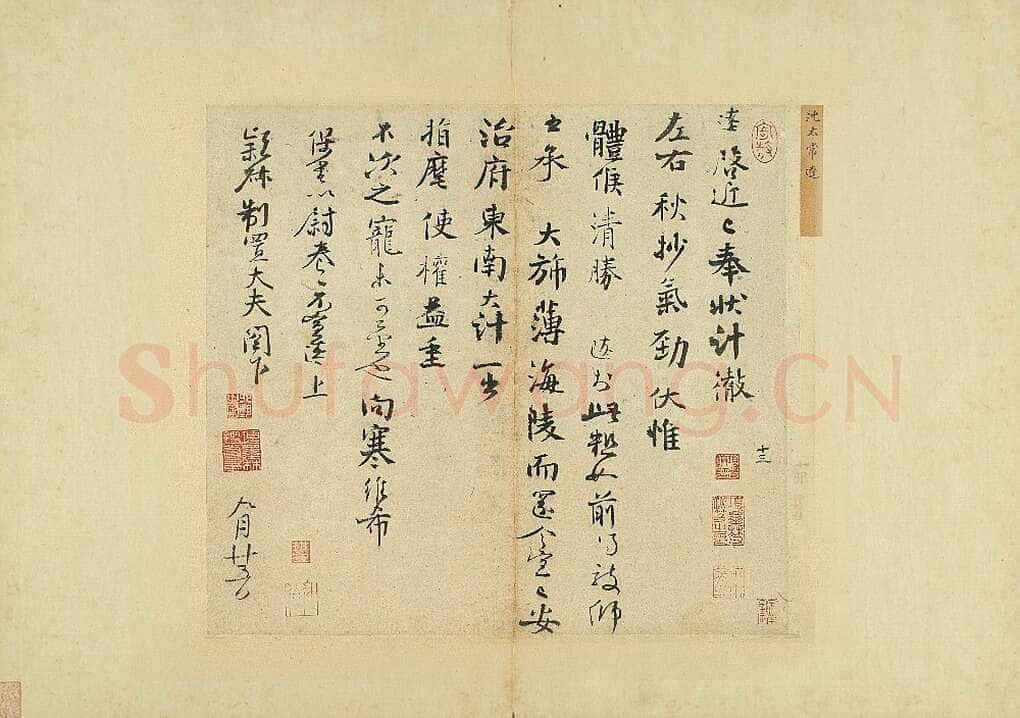 沈太常遼
遼啓近〻奉狀計徹
十三
左右秋杪氣勁伏惟
體候清勝 遼於此粗如前得被師
書承 大旆薄海陵而還 安
治府東南大計一出
指麾使權益重
不次之寵未可量也向寒 希
保重以尉眷〻不宣遼上
穎叔制置大夫閣下
九月廿五日
Shufawang.CN